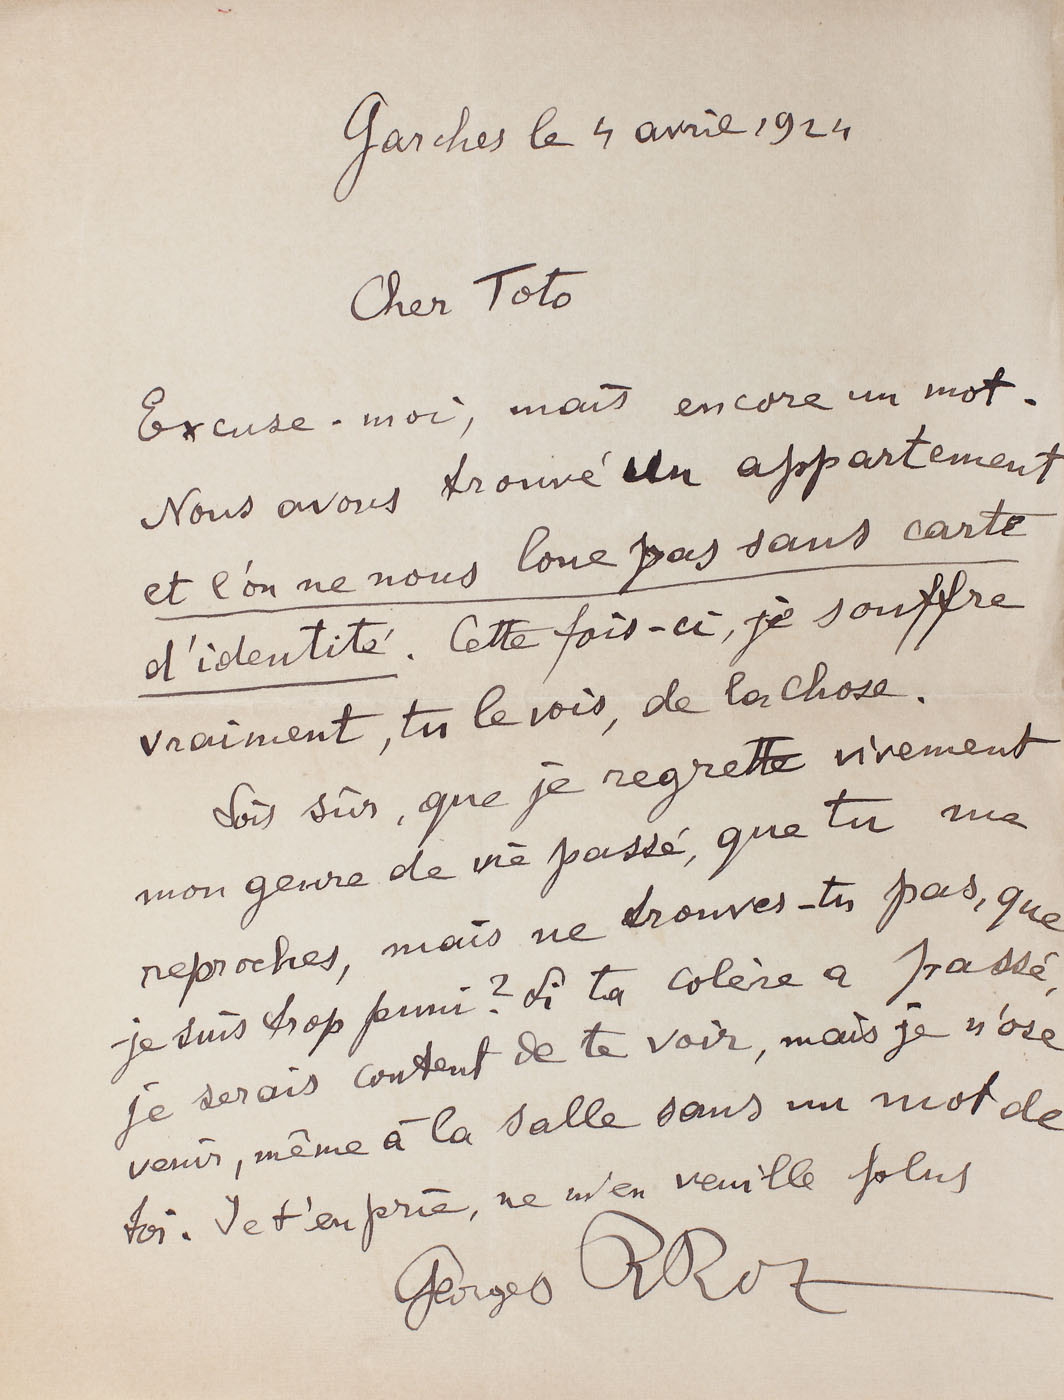 Garches le 4 avril 1924
Cher Toto
Excuse-moi, mais encore un mot.
Nous avons trouvé un appartement
et l'on ne nous loue pas sans carte
d'identité. Cette fois-ci, je souffre
vraiment, tu le vois, de la chose.
Sois sûr, que je regrette vivement
mon genre de vie passé, que tu me
reproches, mais ne trouves-tu pas, que
je suis trop puni? Si ta colère a passé,
je serais content de te voir, mais je n'ose
venir, même à la salle sans un mot de
toi. Je t'en prie, ne m'en veuille plus
Georges